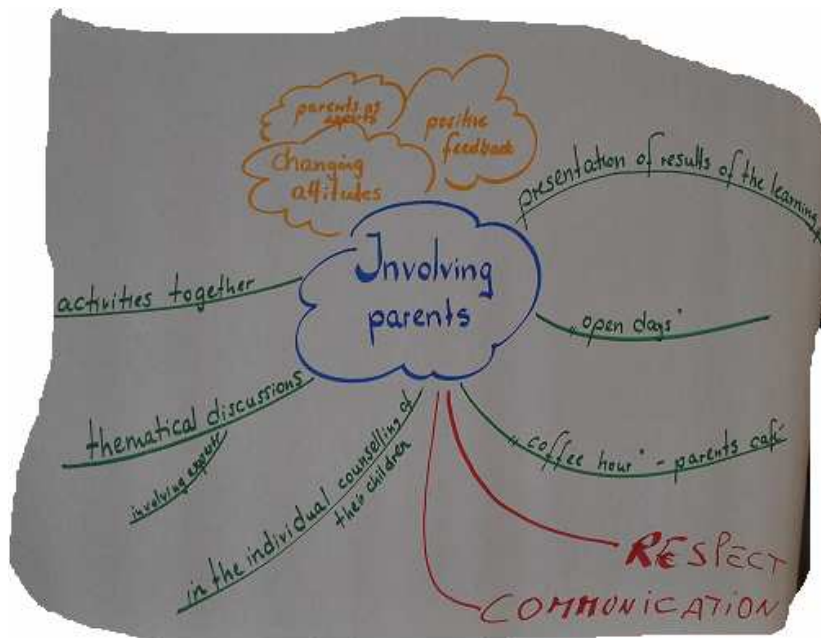 parents as
experts
positive
feedback
changing
attitudes
presentation of results of the learning
Involving
parents
activities together
„open days"
thematical discussions
involving experts
in the individual counselling of
their children
„coffee hour" - parents café
RESPECT
COMMUNICATION